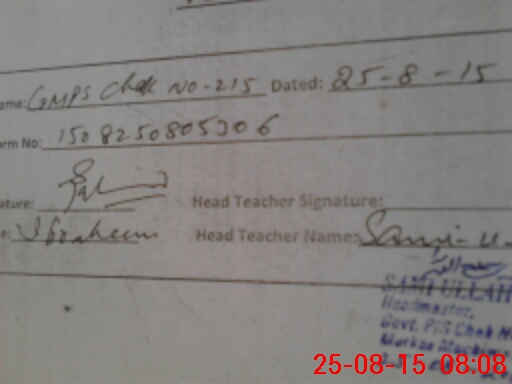 ame: GMPS Chak NO-215 Dated: 25-8-15
orm No: 150825080530 6
ature: Head Teacher Signature:
e: Ibraheem Head Teacher Name: Sami-u
SAMI ULLAH
Headmaster,
Govt. P/S Chak N
Markaz
25-08-15 08:08